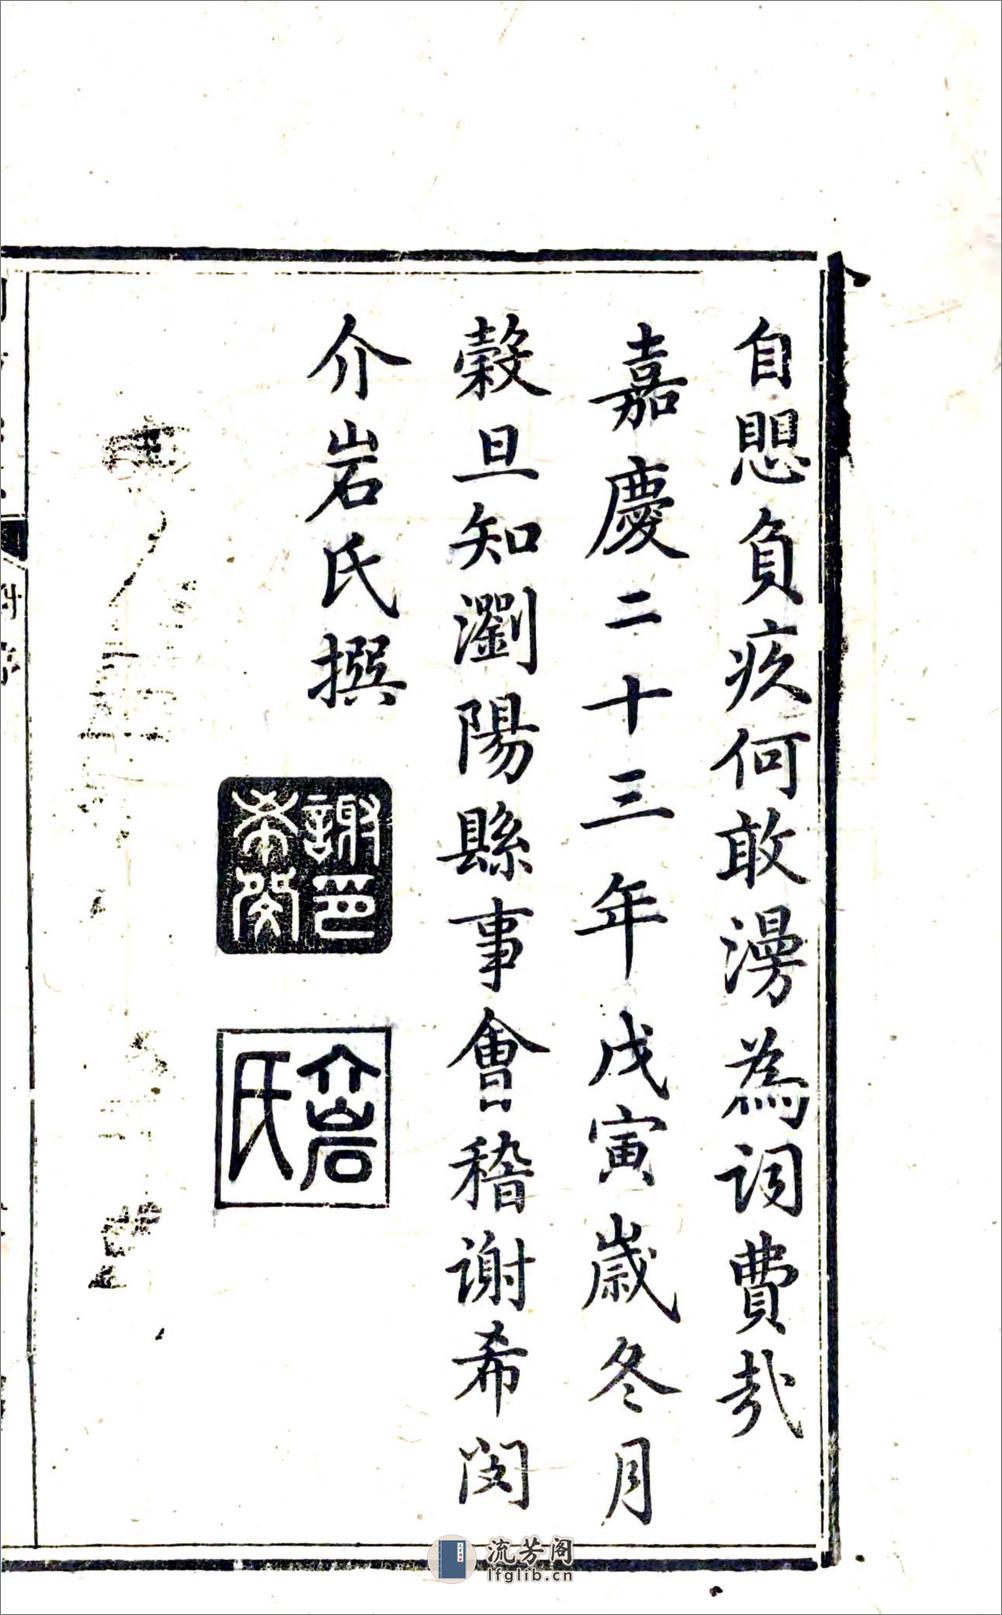 自愳負疚何敢漫為詞費哉
嘉慶二十三年戊寅歲冬月
穀旦知瀏陽縣事會稽謝希閔
介岩氏撰
謝印
希閔
介岩
氏
流芳阁
lfglib.cn